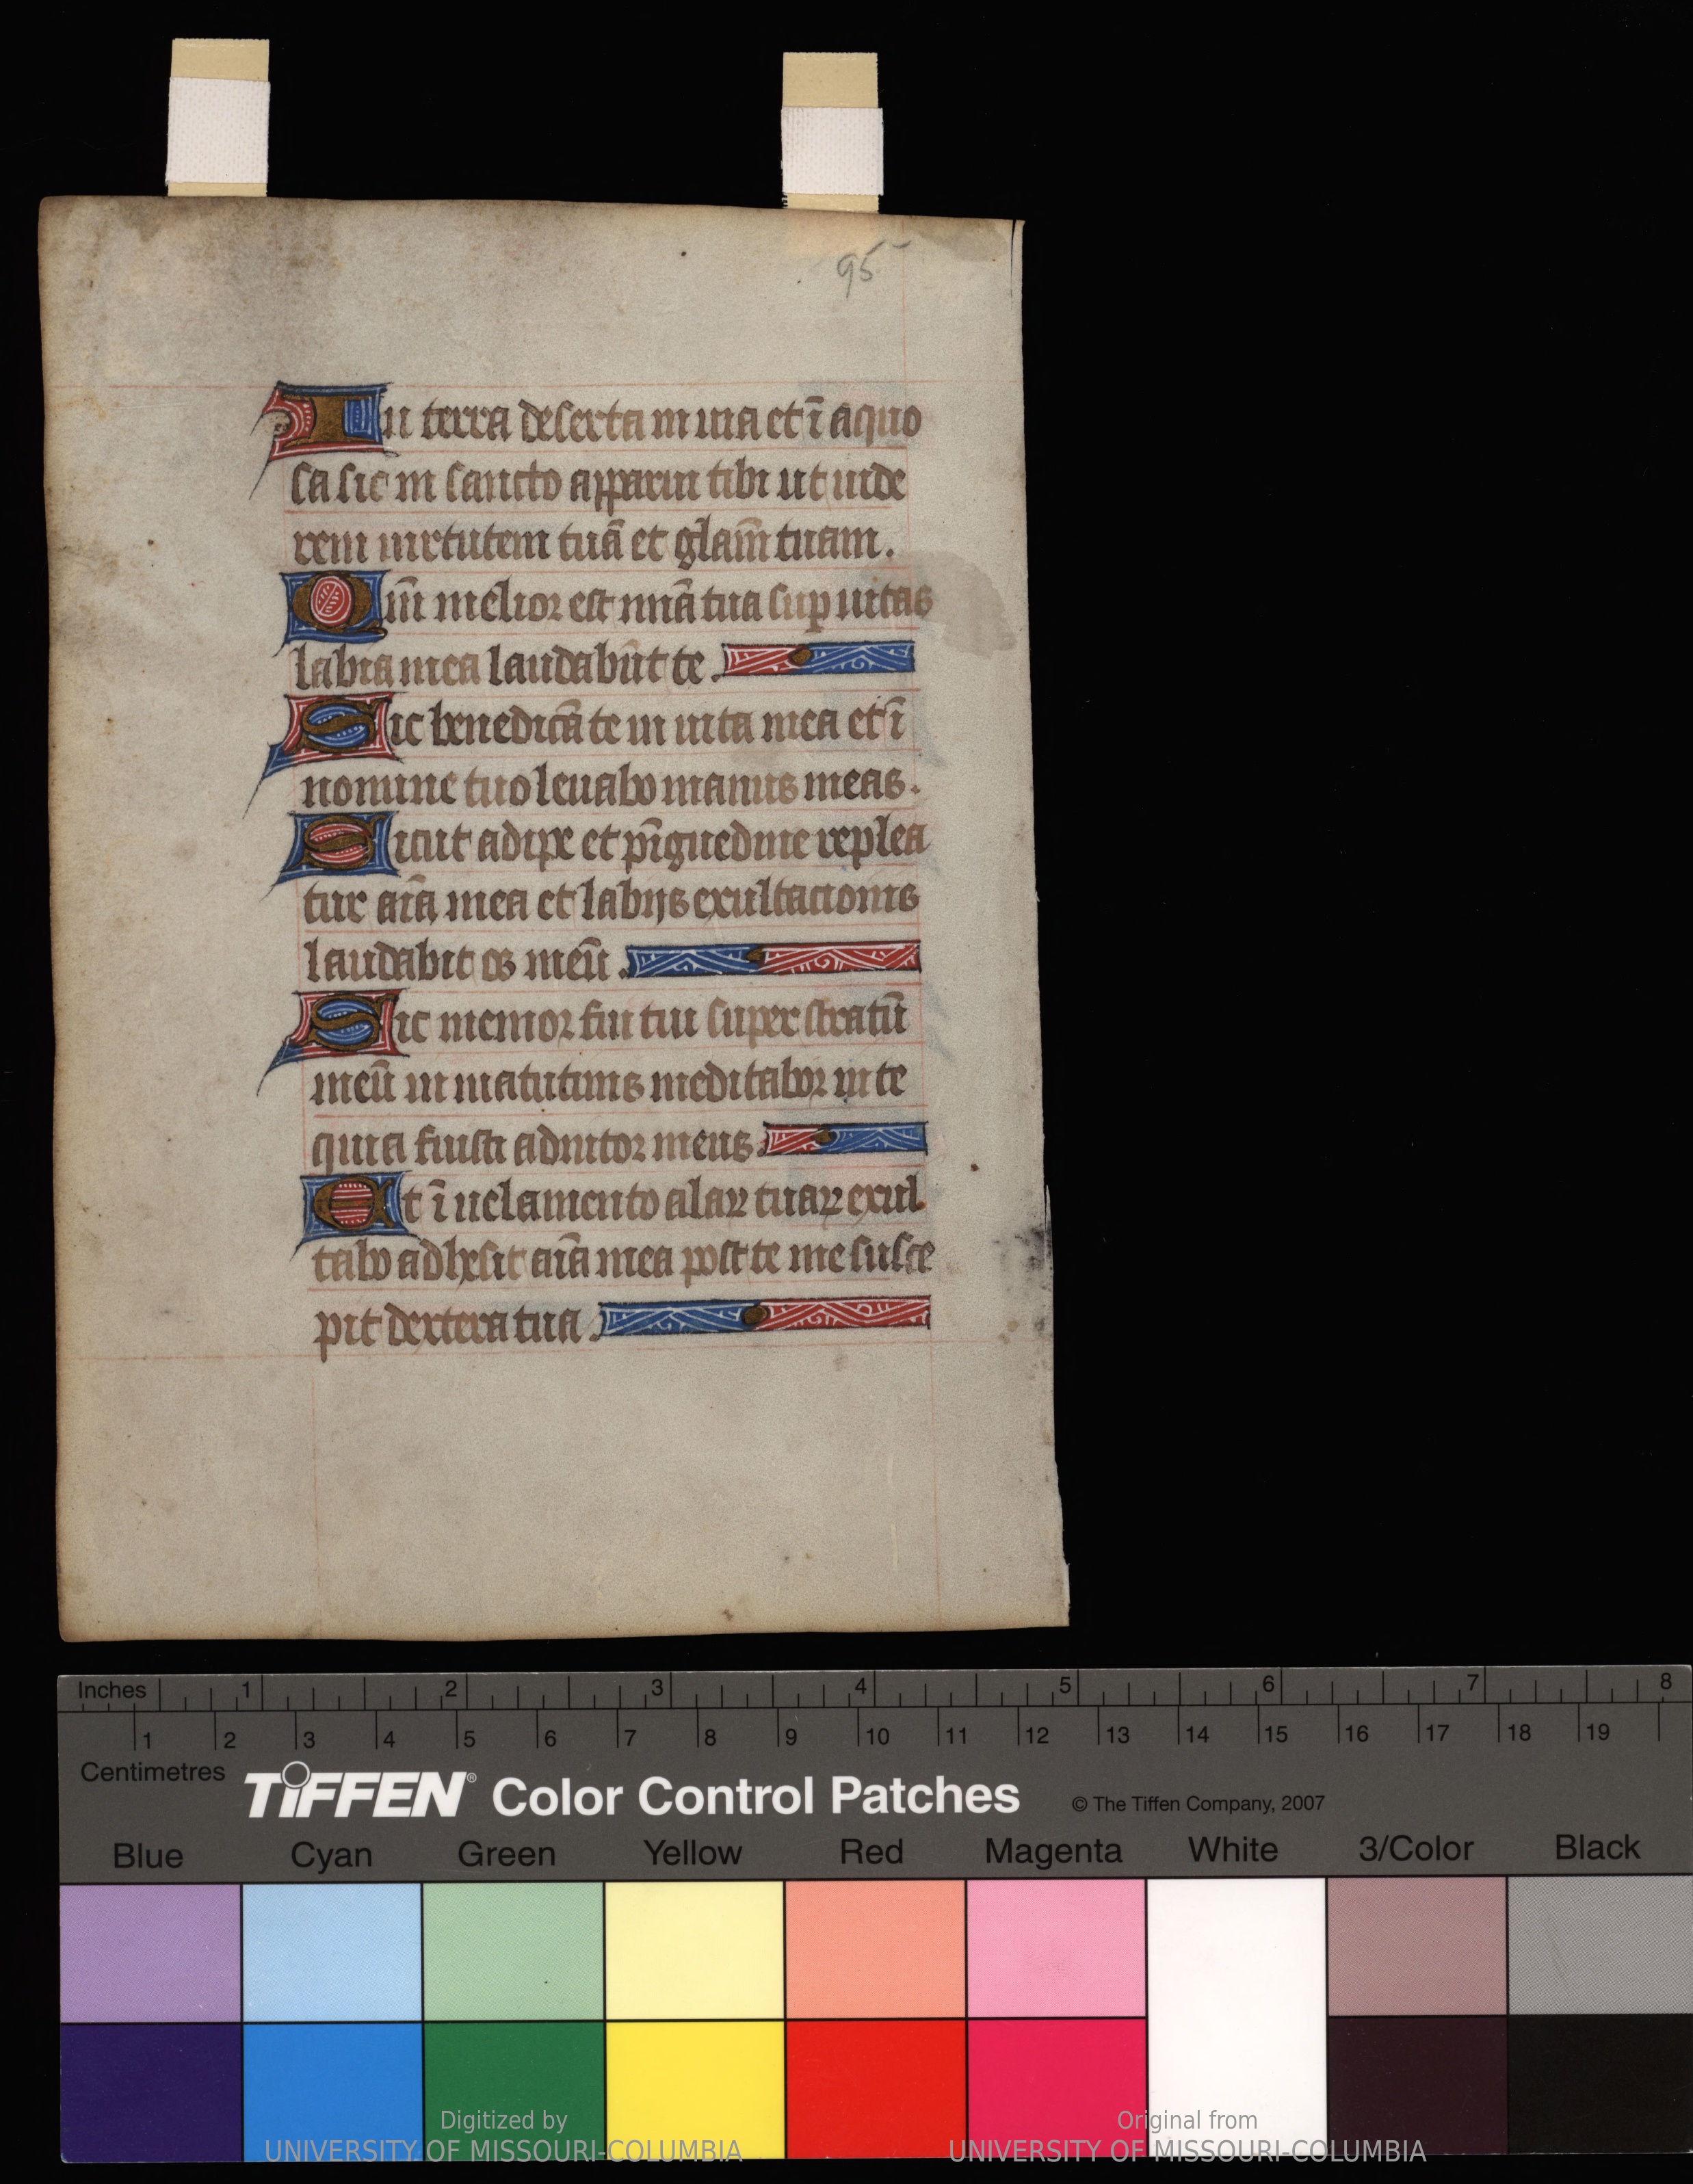 95
In terra deserta in uia et ī aquo
sa sic in sancto apparui tibi ut uide
rem uirtutem tuā et glām̄ tuam.
Qm̄ melior est mīa tua sup uitas
labia mea laudabūt te.
Sic benedicā te in uita mea et ī
nomine tuo leuabo manus meas.
Sicut adipe et pīguedine replea
tur aīa mea et labijs exultacionis
laudabit os meū.
Sic memor fui tui super stratū
meū in matutinis meditabor in te
quia fuisti adiutor meus.
Et ī uelamento alaꝝ tuaꝝ exul
tabo adhesit aīa mea post te me susce
pit dextera tua.
Inches 1 2 3 4 5 6 7 8
1 2 3 4 5 6 7 8 9 10 11 12 13 14 15 16 17 18 19
Centimetres
TIFFEN® Color Control Patches © The Tiffen Company, 2007
Blue Cyan Green Yellow Red Magenta White 3/Color Black
Digitized by
UNIVERSITY OF MISSOURI-COLUMBIA
Original from
UNIVERSITY OF MISSOURI-COLUMBIA